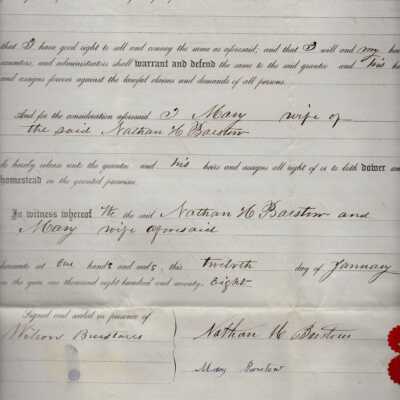 that I have good right to sell and convey the same as aforesaid; and that I will and my
executors, and administrators shall warrant and defend the same to the said grantee and his
and assigns forever against the lawful claims and demands of all persons.
And for the consideration aforesaid I Mary wife of
the said Nathan H Barstow
do hereby release unto the grantee and his heirs and assigns all right of or to both dower and
homestead in the granted premises.
In witness whereof We the said Nathan H Barstow and
Mary wife aforesaid
hereunto set our hands and seals, this twelveth day of January
in the year one thousand eight hundred and seventy eight
Signed and sealed in presence of
Wilson
Nathan H Barstow
Mary Barstow